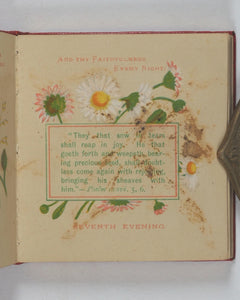 And thy Faithfulness
Every Night.
"They that sow in tears
shall reap in joy. He that
goeth forth and weepeth, bear-
ing precious seed, shall doubt-
less come again with rejoicing,
bringing his sheaves with
him."—Psalm 5, 6.
SEVENTH EVENING.